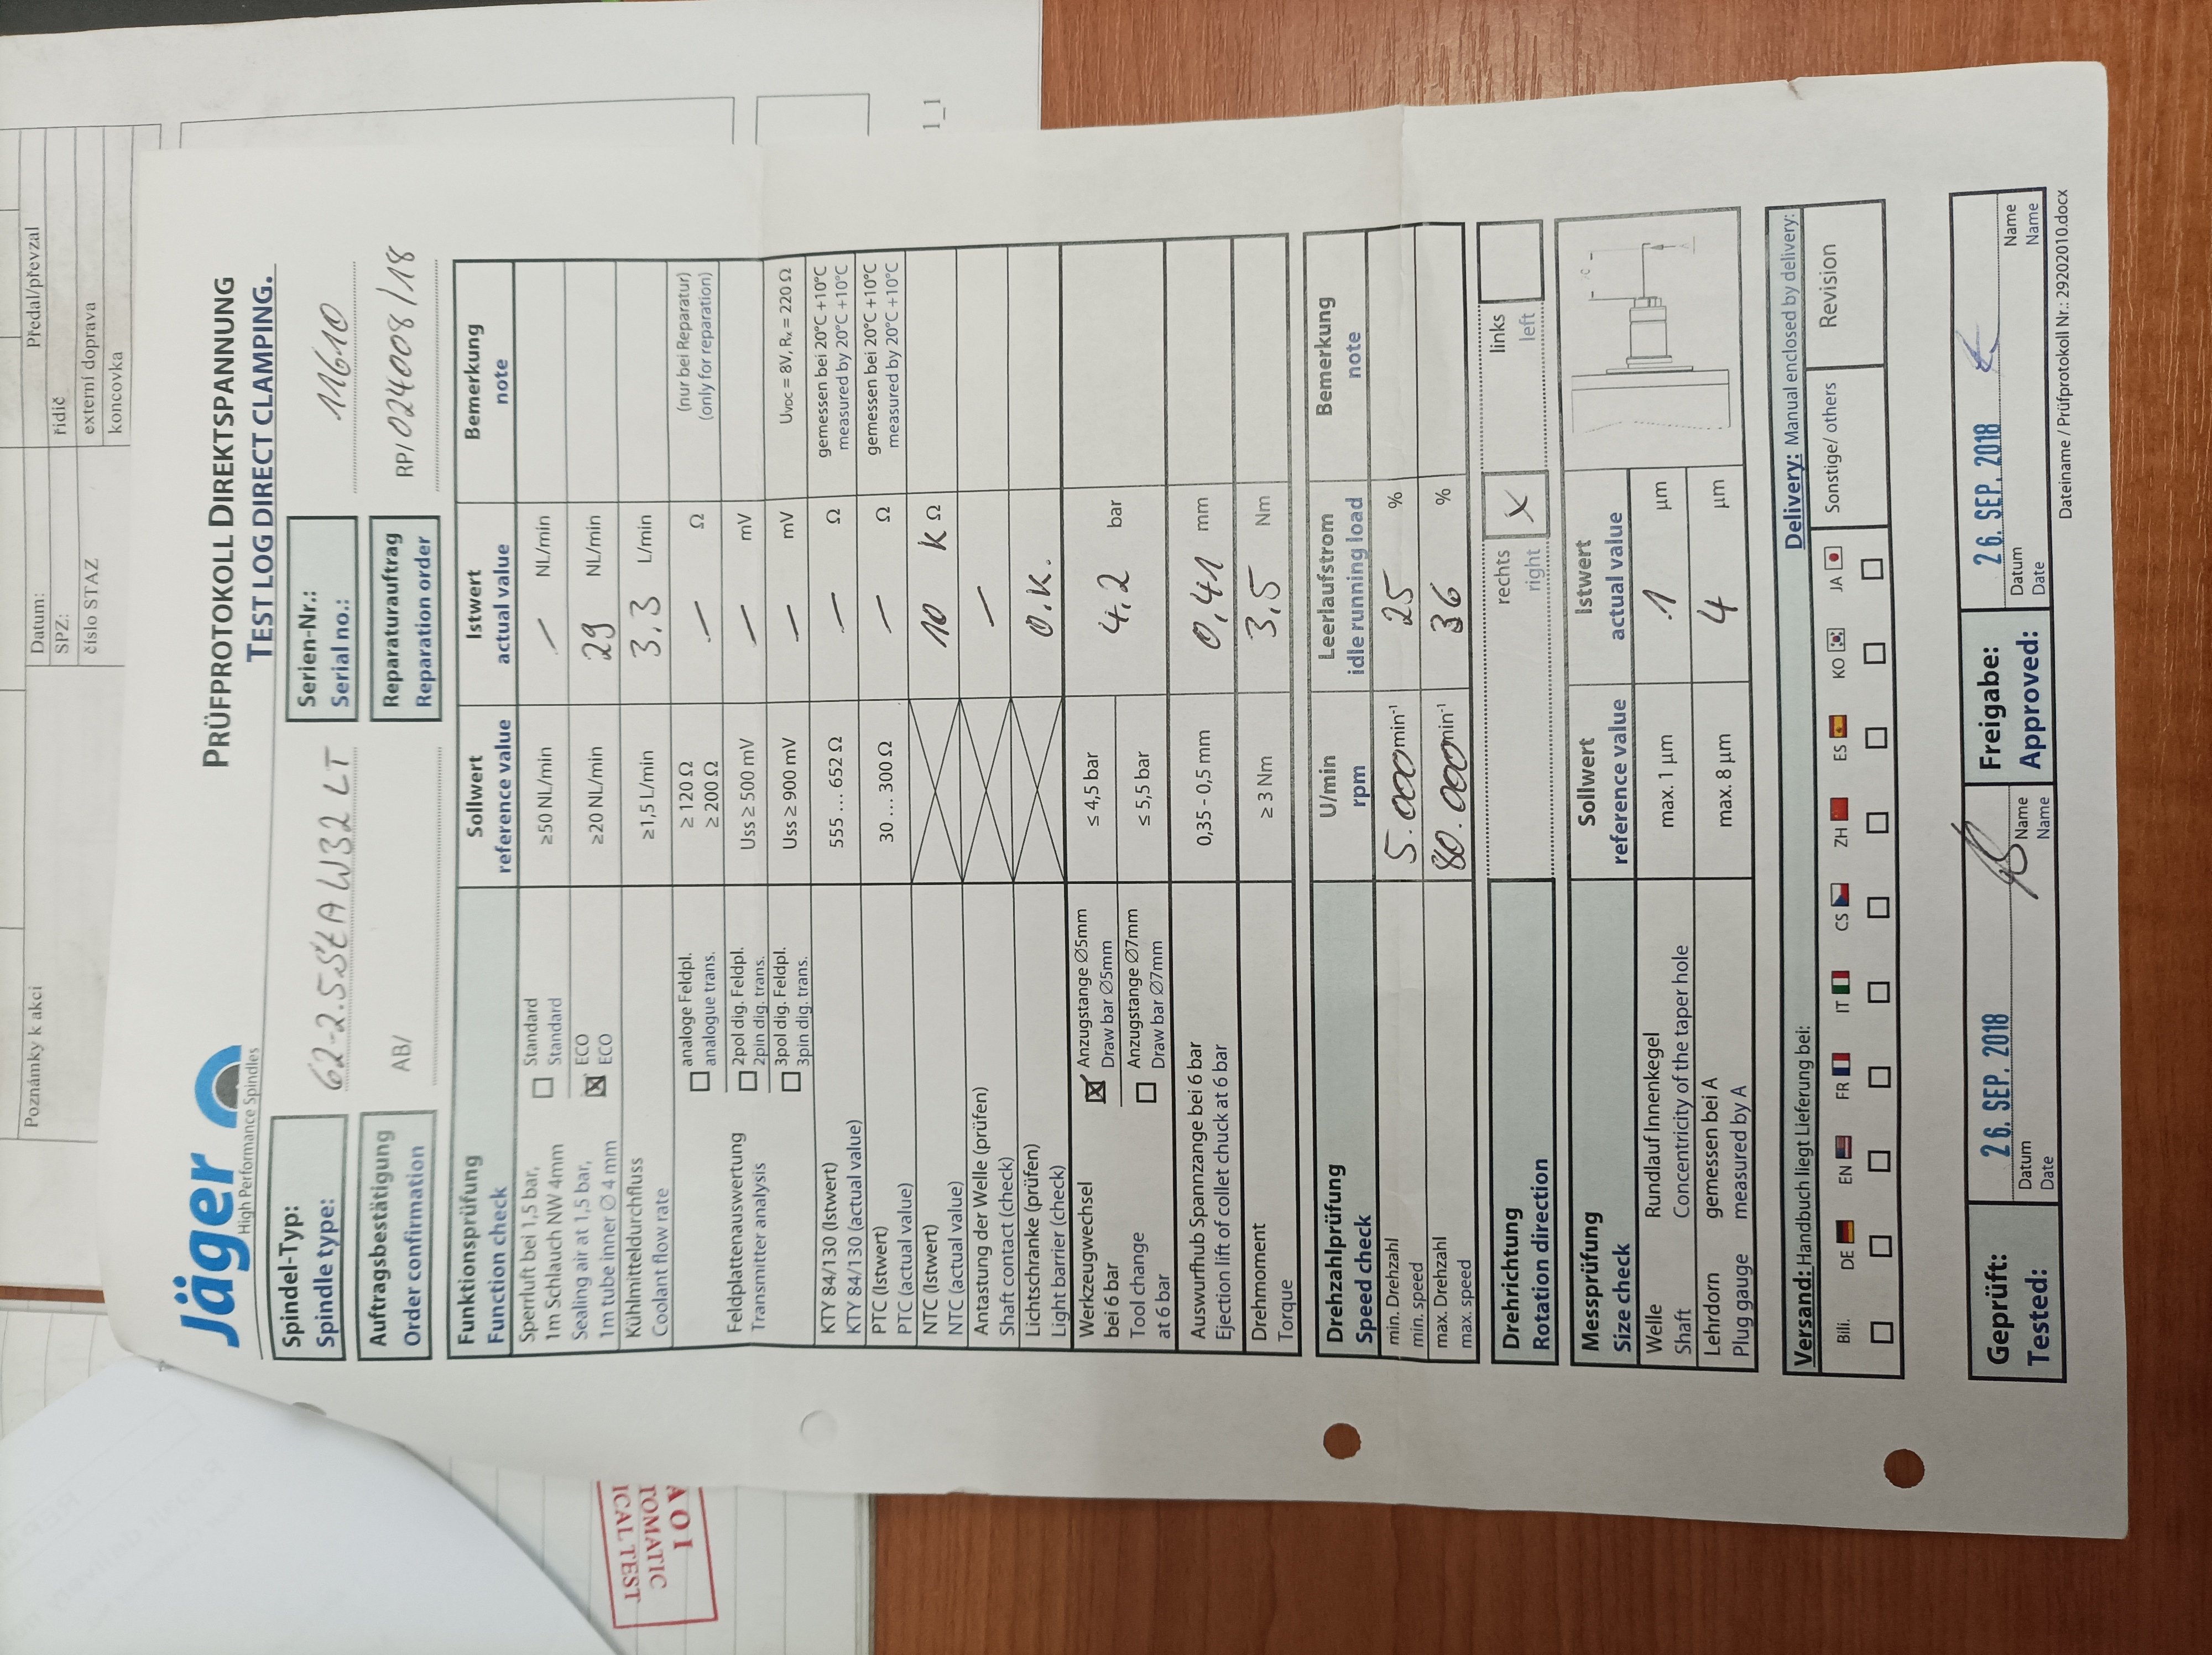 Poznámky k akci
Datum:
SPZ:
číslo STAZ
Předal/převzal
řidič
externí doprava
koncovka
1_1
Jäger
High Performance Spindles
PRÜFPROTOKOLL DIREKTSPANNUNG
TEST LOG DIRECT CLAMPING.
Spindel-Typ:
Spindle type:
Serien-Nr.:
Serial no.:
11610
Auftragsbestätigung
Order confirmation
AB/
Reparaturauftrag
Reparation order
RP/024008/18
Funktionsprüfung Sollwert Istwert Bemerkung
Function check reference value actual value note
Sperrluft bei 1,5 bar, Standard ≥50 NL/min — NL/min
1m Schlauch NW 4mm Standard
Sealing air at 1,5 bar, ☒ ECO ≥20 NL/min 29 NL/min
1m tube inner Ø 4 mm ECO
Kühlmitteldurchfluss ≥1,5 L/min 3,3 L/min
Coolant flow rate
analoge Feldpl. ≥ 120 Ω — Ω (nur bei Reparatur)
analogue trans. ≥ 200 Ω (only for reparation)
Feldplattenauswertung 2pol dig. Feldpl. Uss ≥ 500 mV — mV
Transmitter analysis 2pin dig. trans.
3pol dig. Feldpl. Uss ≥ 900 mV — mV UVDC = 8V, Rx = 220 Ω
3pin dig. trans.
KTY 84/130 (Istwert) 555 … 652 Ω — Ω gemessen bei 20°C +10°C
KTY 84/130 (actual value) measured by 20°C +10°C
PTC (Istwert) 30 … 300 Ω — Ω gemessen bei 20°C +10°C
PTC (actual value) measured by 20°C +10°C
NTC (Istwert) 10 k Ω
NTC (actual value)
Antastung der Welle (prüfen) —
Shaft contact (check)
Lichtschranke (prüfen) O.K.
Light barrier (check)
Werkzeugwechsel ☒ Anzugstange Ø5mm ≤ 4,5 bar 4.2 bar
bei 6 bar Draw bar Ø5mm
Tool change Anzugstange Ø7mm ≤ 5,5 bar
at 6 bar Draw bar Ø7mm
Auswurfhub Spannzange bei 6 bar 0,35 - 0,5 mm 0,41 mm
Ejection lift of collet chuck at 6 bar
Drehmoment ≥ 3 Nm 3,5 Nm
Torque
Drehzahlprüfung U/min Leerlaufstrom Bemerkung
Speed check rpm idle running load note
min. Drehzahl 5.000 min-1 25 %
min. speed
max. Drehzahl 80.000 min-1 36 %
max. speed
Drehrichtung rechts X links
Rotation direction right left
Messprüfung Sollwert Istwert
Size check reference value actual value
Welle Rundlauf Innenkegel max. 1 µm .1 µm
Shaft Concentricity of the taper hole
Lehrdorn gemessen bei A max. 8 µm 4 µm
Plug gauge measured by A
Versand: Handbuch liegt Lieferung bei: Delivery: Manual enclosed by delivery:
Bili. DE EN FR IT CS ZH ES KO JA Sonstige/ others Revision
Geprüft: 26. SEP. 2018 Freigabe: 26. SEP. 2018
Tested: Datum Name Approved: Datum Name
Date Name Date Name
Dateiname / Prüfprotokoll Nr.: 29202010.docx
AOI
TOMATIC
ICAL TEST